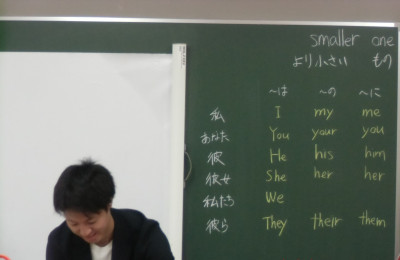 smaller one
より小さい もの
〜は 〜の 〜に
私 I my me
あなた You your you
彼 He his him
彼女 She her her
私たち We
彼ら They their them